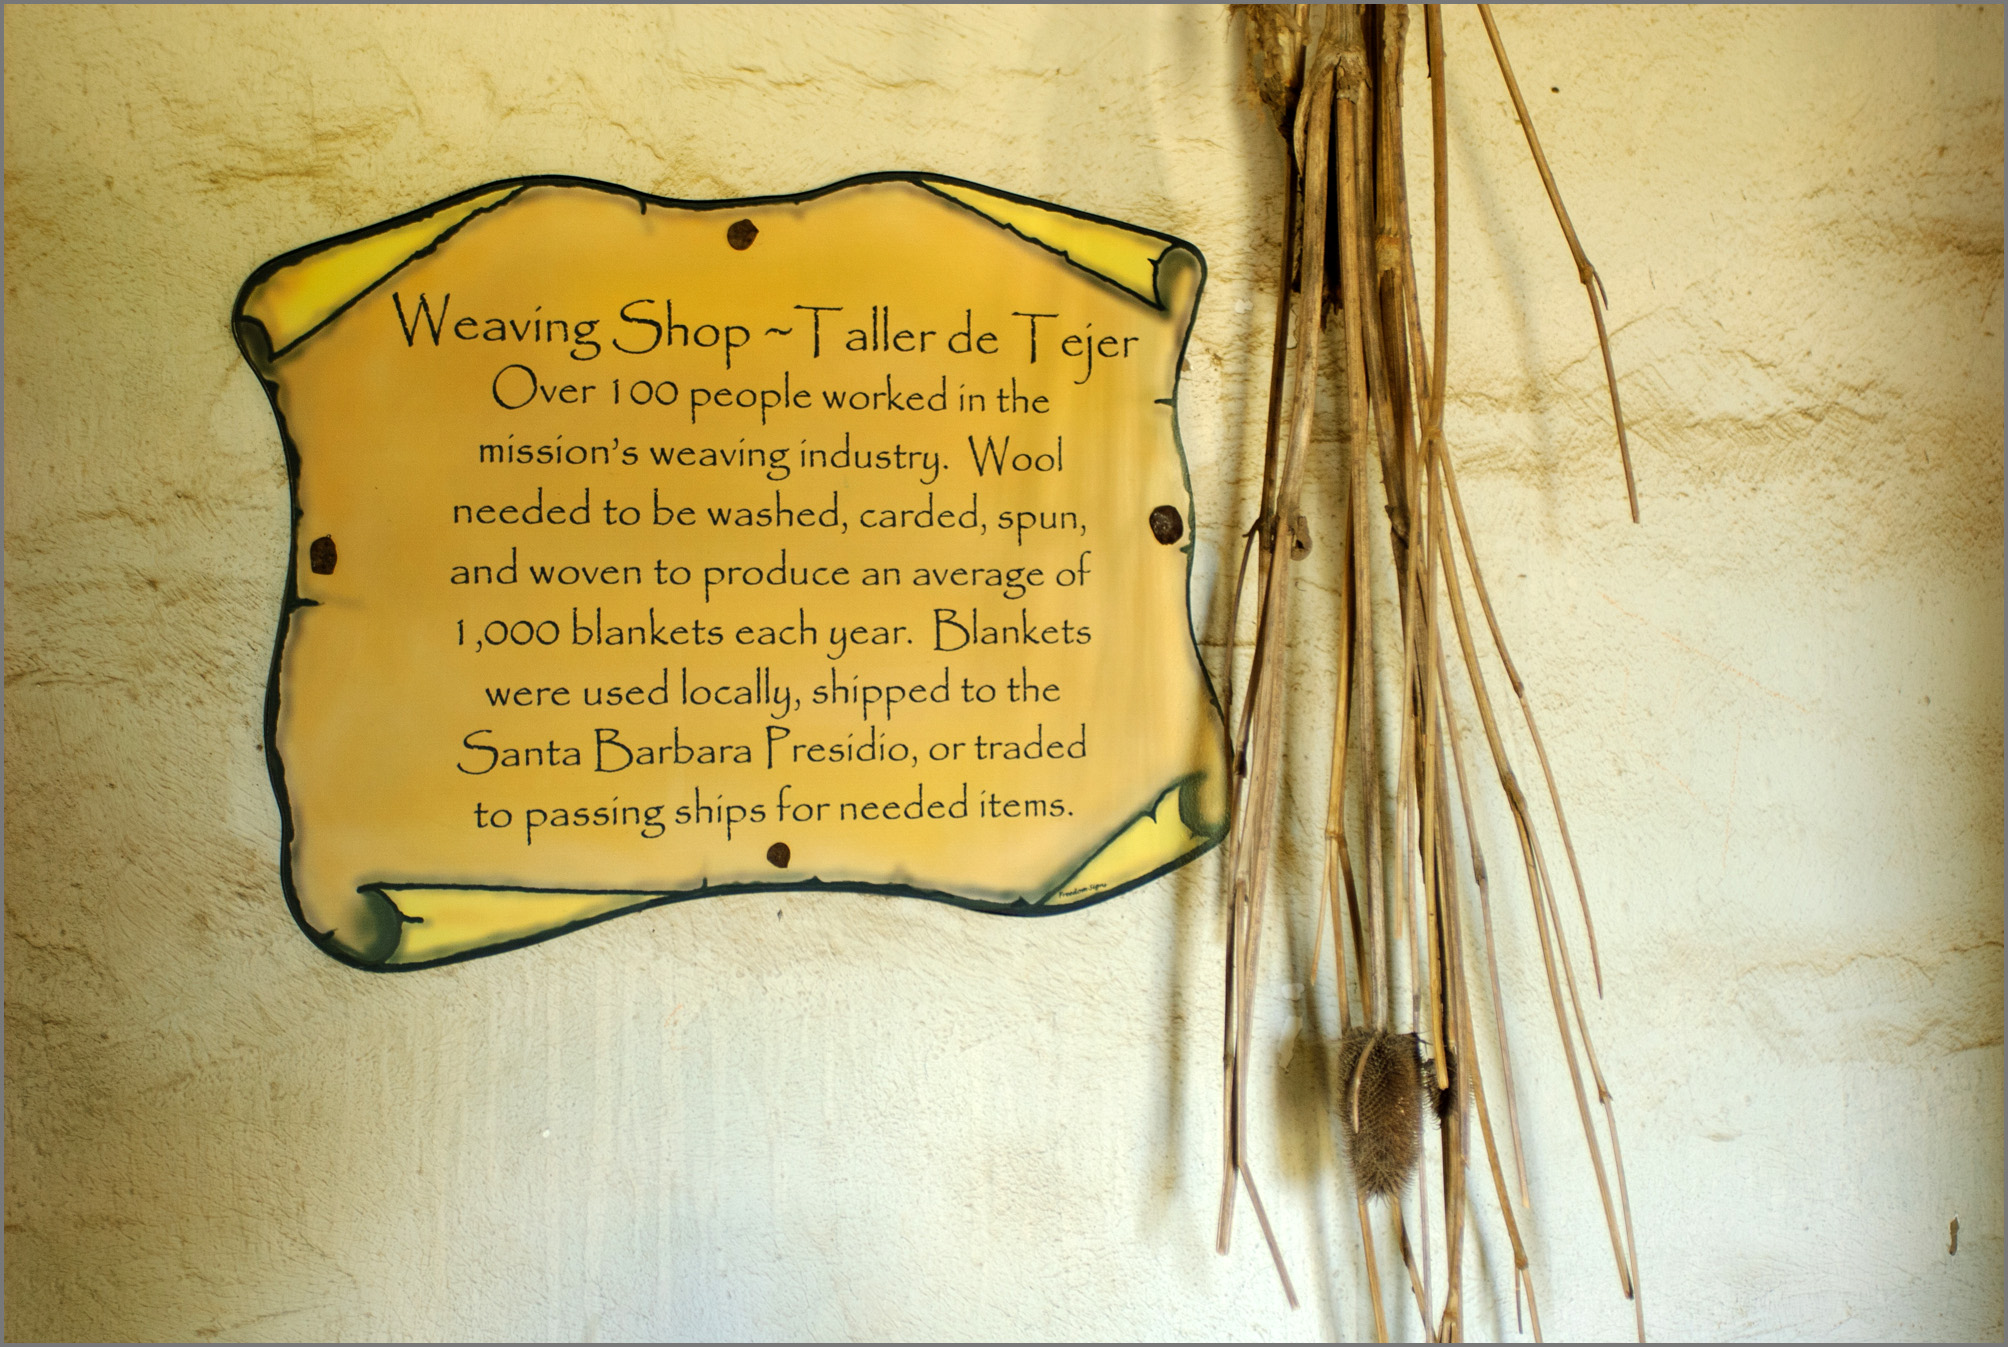 Weaving Shop ~ Taller de Tejer
Over 100 people worked in the
mission's weaving industry. Wool
needed to be washed, carded, spun,
and woven to produce an average of
1,000 blankets each year. Blankets
were used locally, shipped to the
Santa Barbara Presidio, or traded
to passing ships for needed items.
Freedom Signs